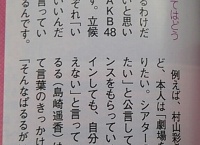 てはどう
るわけだ
いと思い
AKB48
す。立候
ぞれ「い
いいんだ
と言って
るんです。
例えば、村山彩
ど、本人は「劇場
りたい。シアター
ンスをもらってい
たい」と公言して
インしても、自分
えない」って言って
る（島崎遥香）は
て言葉のきっかけ
「そんなばるるが